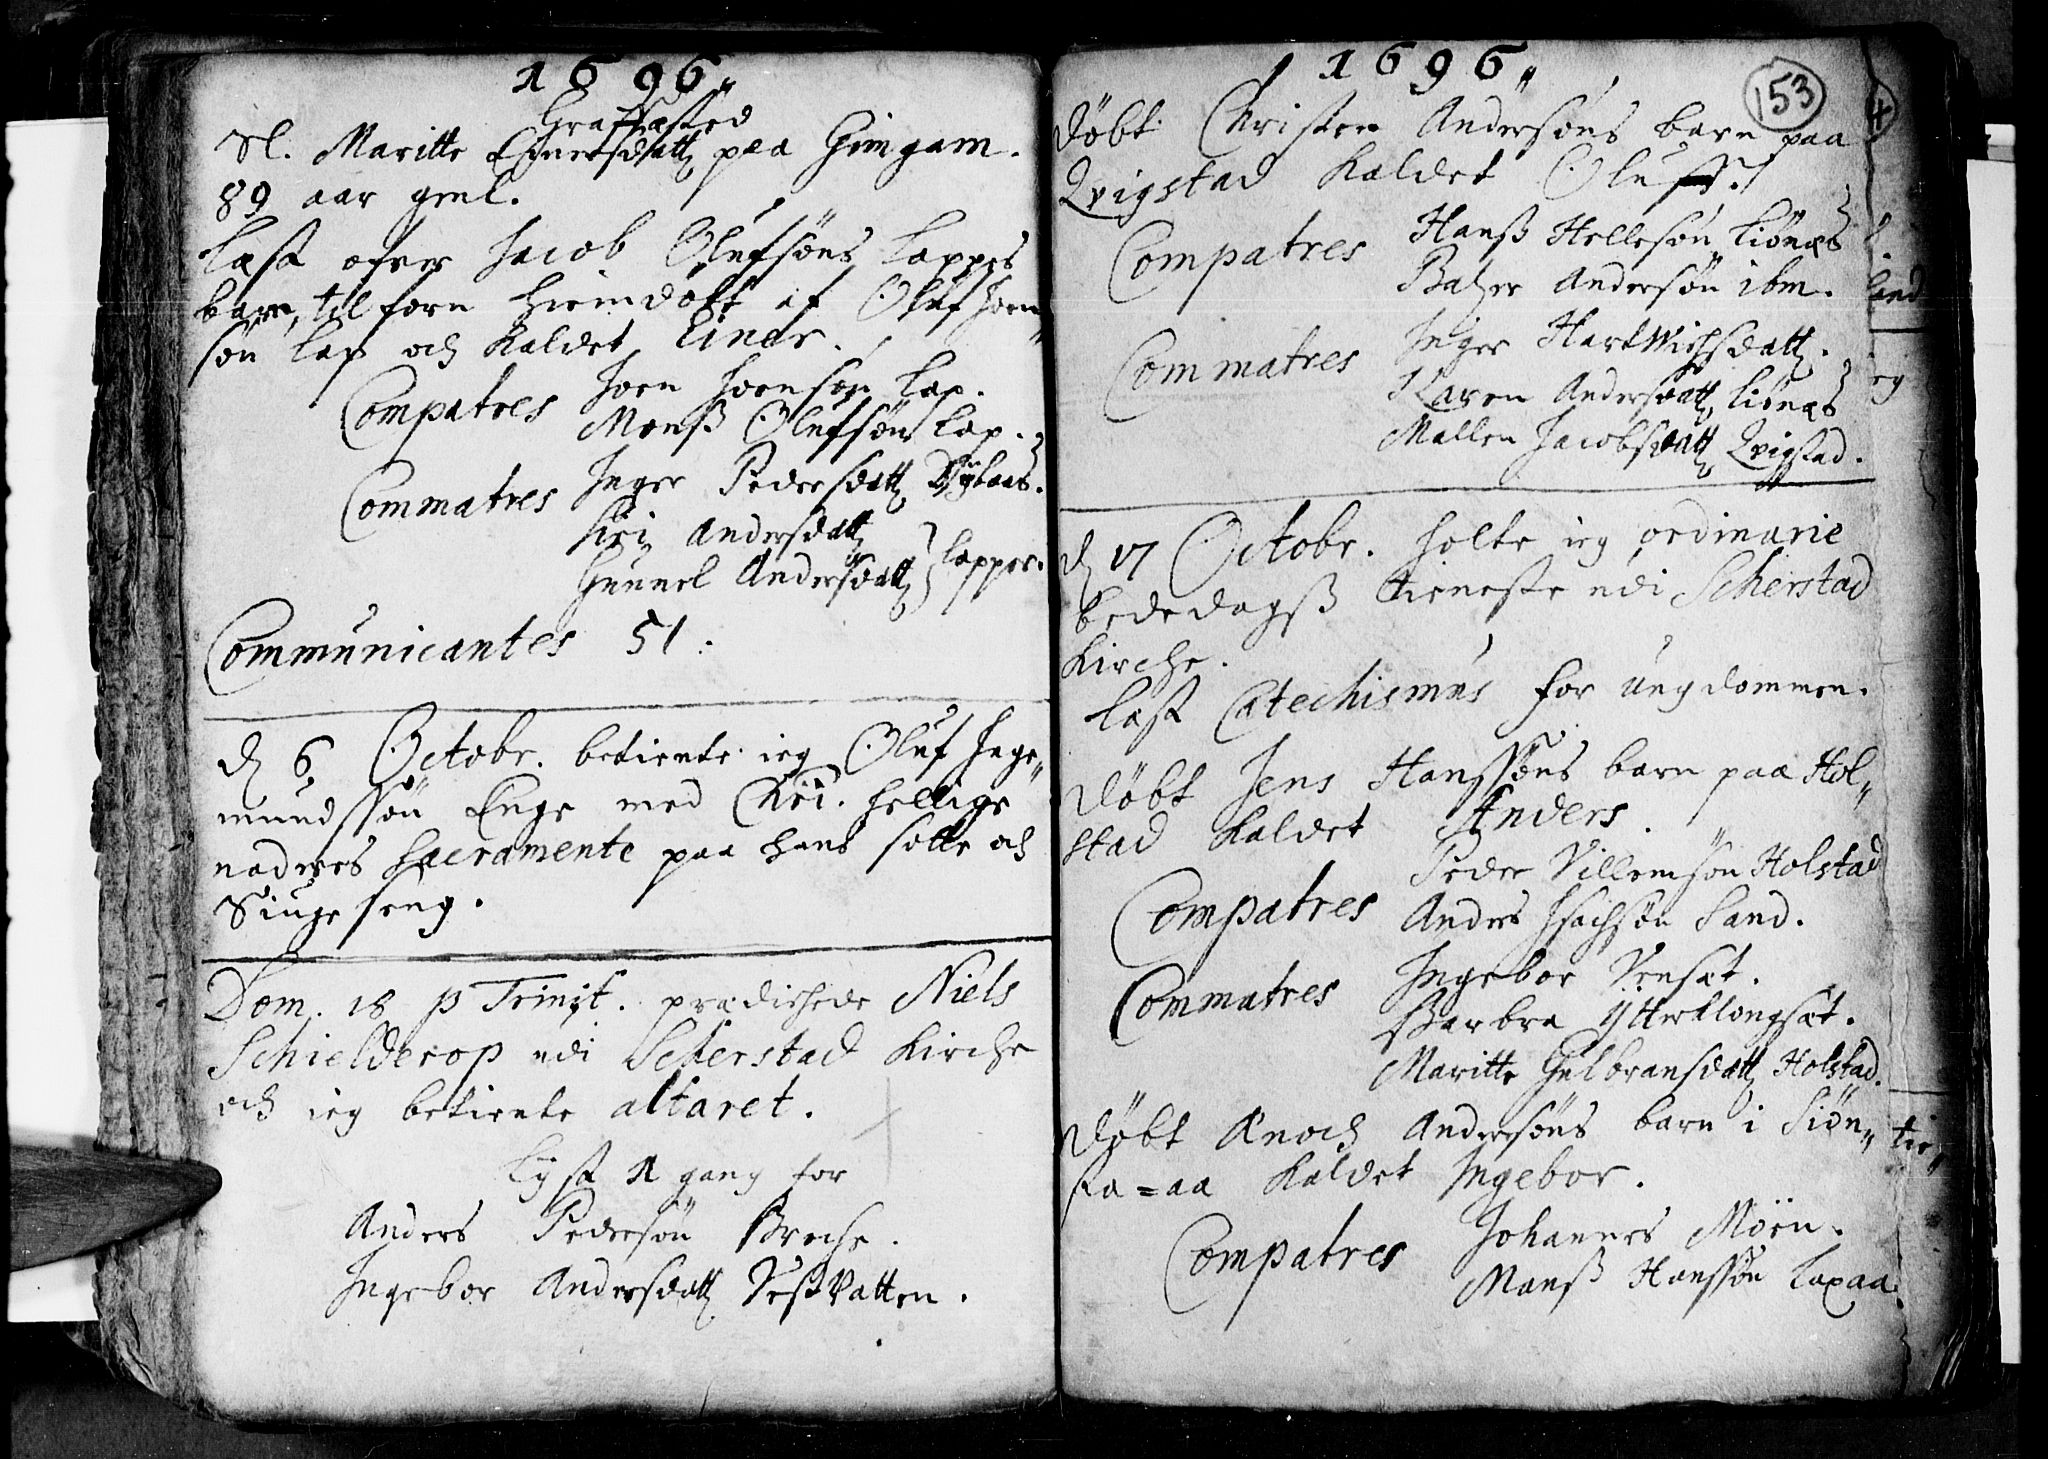 1696,,
Graffæsted
Sl. Maritte Ejnersdatt paa Gimgam.
89 aar gml.
Læst ofver Jacob Olufsöns Lappes
barn, til forn hiemdöbt af Oluf Joen
sön Lap och kaldet Einar.
Compatres Joen Joensøn Lap.
Monß Olufsön Lap.
Commatres Inger Pedersdatt Dybaas.
Siri Andersdatt
Gunnel Andersdatt } Lapper.
Communicantes 51.
d 6 Octobr. betiente ieg Oluf Inge„
mundssön Enge med Chri. hellige
nadves Sacramente paa hans sotte och
Siuge seng.
Dom. 18 p Trinit. prædichede Niels
Schielderop udi Scherstad Kirche
och ieg betiente altaret.
Lyst 1 gang for
Anders Pedersön Breche.
Ingebor Andersdatt Vestvatten.
1696,,
153
4
döbt Christen Andersöns barn paa
Qvigstad kaldet Oluf.
Compatres Hanß Hellesön Liönæs
Balzer Andersön ibm.
Commatres Inger Hartwichsdatt.
Karen Andersdatt Liönæs
Mallen Jacobsdatt Qvigstad.
d 17 Octobr. holte ieg ordinarie
bededagß tieneste udi Scherstad
Kirche.
Læst Catechismus for ungdommen.
döbt Jens Hanssöns barn paa Hol„
stad kaldet Anders.
Compatres Peder Villemsön Holstad
Anders Isachsön Sand.
Commatres Ingebor Venset.
Barbra Ytterklongset.
Maritte Gulbransdatt Holstad.
döbt Ænoch Andersöns barn i Siön„
sta=aa kaldet Ingebor.
Compatres Johannes Möen.
Monß Hanssön Laxaa.